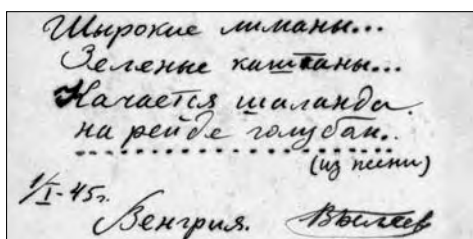 Широкие лиманы...
Зеленые каштаны...
Качается шаланда
на рейде голубом..
(из песни)
1/I-45г.
Венгрия. ВБеляев